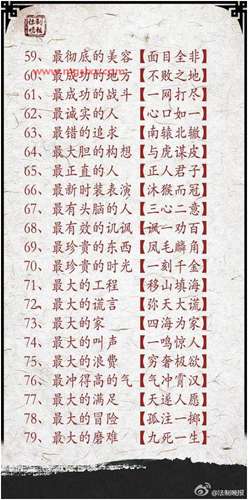 59、最彻底的美容【面目全非】
60、最成功的地方【不败之地】
61、最成功的战斗【一网打尽】
62、最诚实的人【心口如一】
63、最错的追求【南辕北辙】
64、最大胆的构想【与虎谋皮】
65、最正直的人【正人君子】
66、最新时装表演【沐猴而冠】
67、最有头脑的人【三心二意】
68、最有效的讥讽【诫一劝百】
69、最珍贵的东西【凤毛麟角】
70、最珍贵的时光【一刻千金】
71、最大的工程【移山填海】
72、最大的谎言【弥天大谎】
73、最大的家【四海为家】
74、最大的叫声【一鸣惊人】
75、最大的浪费【穷奢极欲】
76、最冲得高的气【气冲霄汉】
77、最大的满足【天遂人愿】
78、最大的冒险【孤注一掷】
79、最大的磨难【九死一生】
@法制晚报